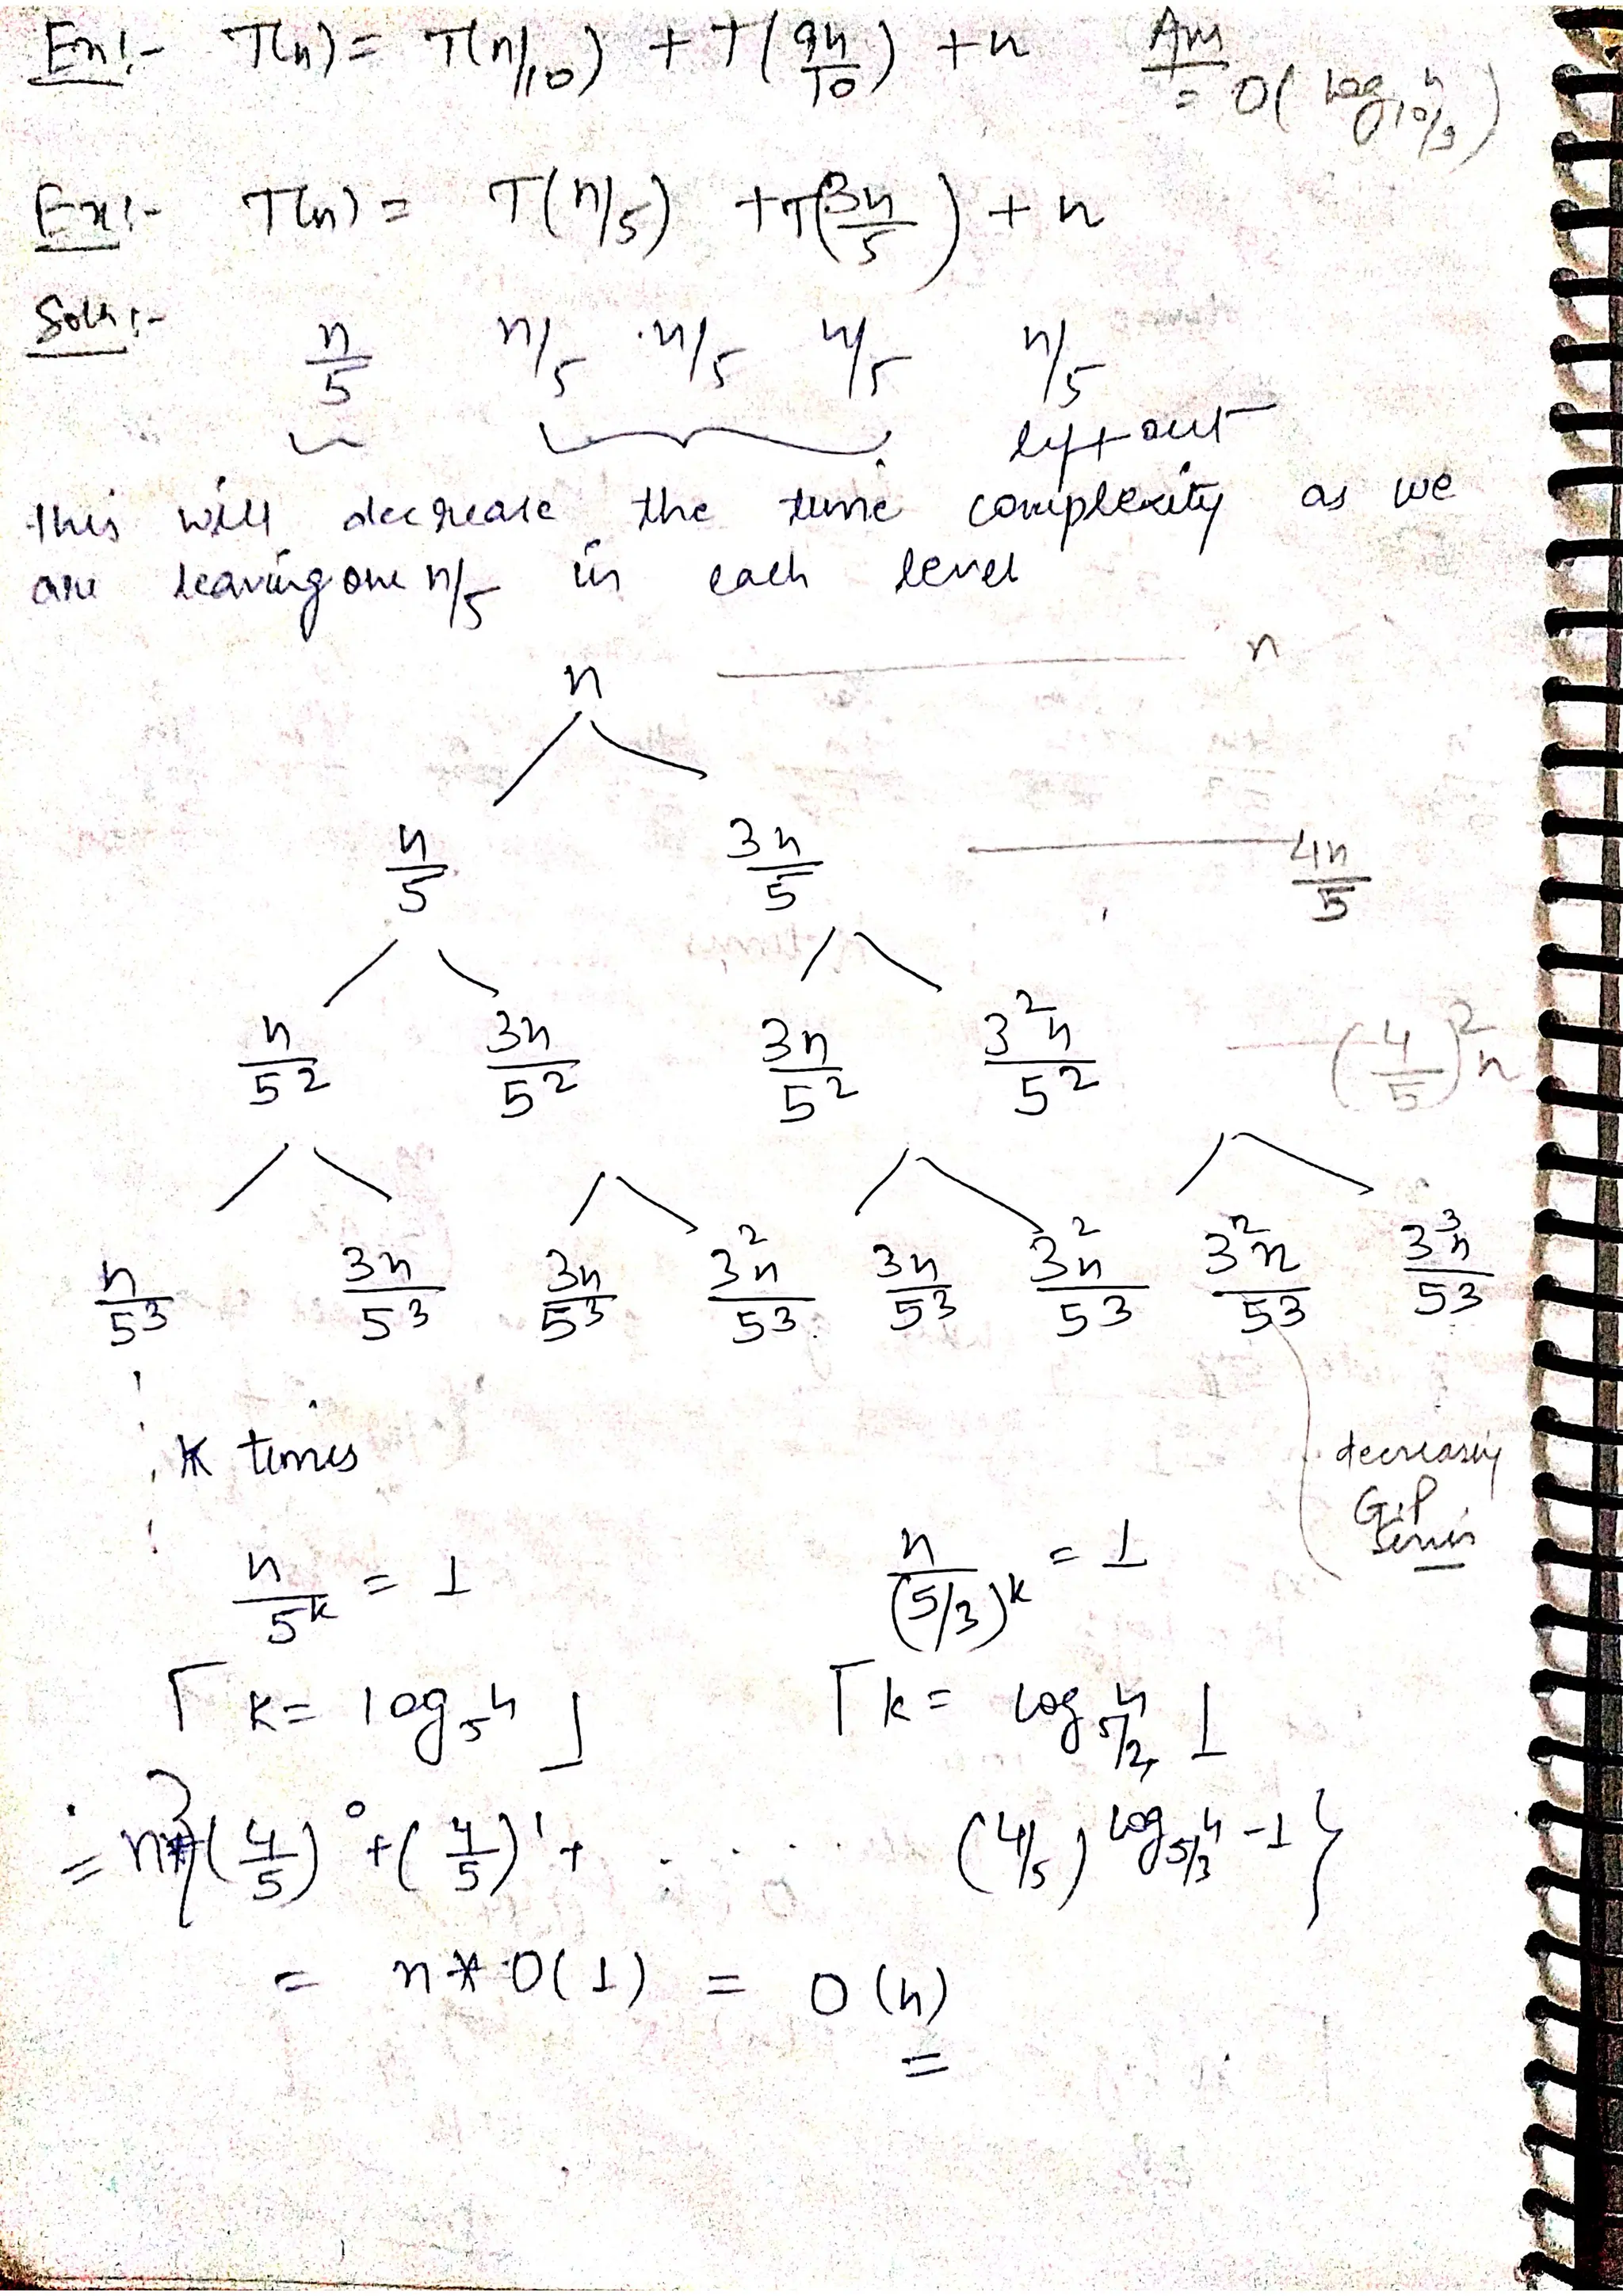 Ex:- T(n) = T(n/10) + T(9n/10) + n Ans = O(log_{10/9} n)
Ex:- T(n) = T(n/5) + T(3n/5) + n
Soln:- n/5 n/5 n/5 n/5 n/5
left out
this will decrease the time complexity as we
are leaving one n/5 in each level
n n
n/5 3n/5 4n/5
n/5^2 3n/5^2 3n/5^2 3^2n/5^2 (4/5)^2 n
n/5^3 3n/5^3 3n/5^3 3^2n/5^3 3n/5^3 3^2n/5^3 3^2n/5^3 3^3n/5^3
K times
decreasing
G.P
series
n/5^k = 1 n/(5/3)^k = 1
⌈ k = log_5 n ⌋ ⌈ k = log_{5/2} n ⌋
= n*{(4/5)^0 + (4/5)^1 + ..... (4/5)^{log_{5/3} n - 1}}
= n * O(1) = O(n)